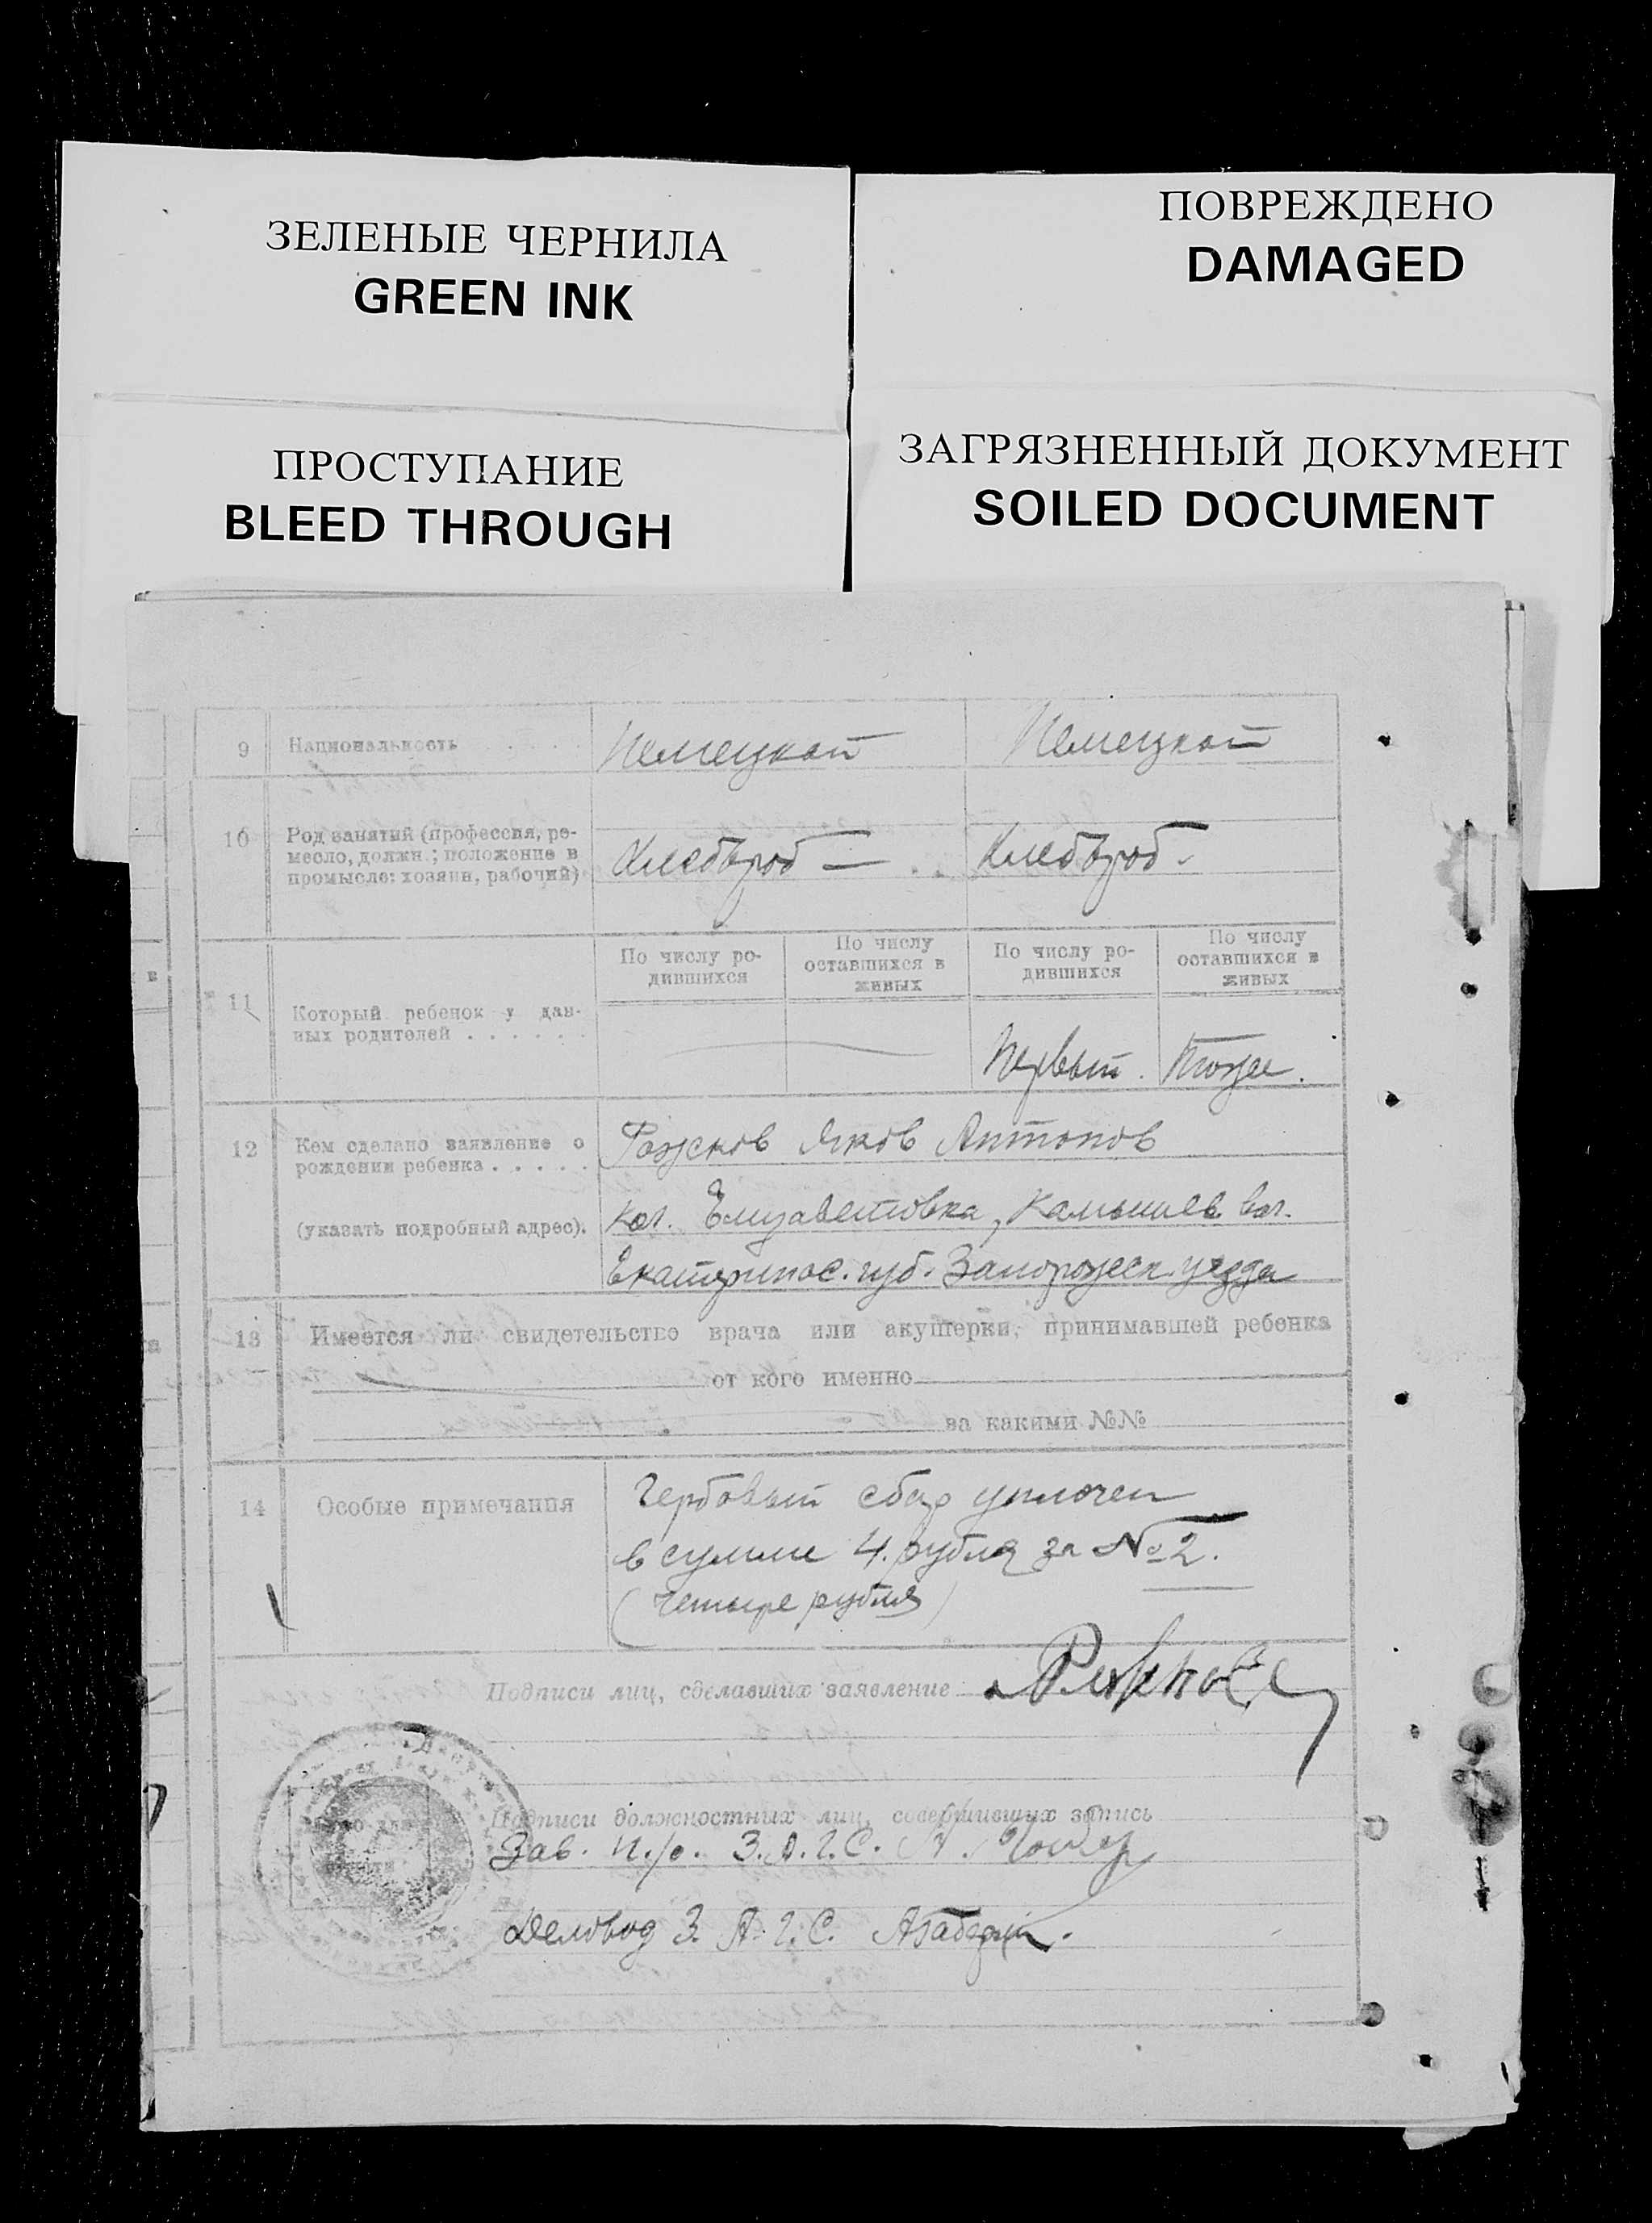 ЗЕЛЕНЫЕ ЧЕРНИЛА
GREEN INK
ПОВРЕЖДЕНО
DAMAGED
ПРОСТУПАНИЕ
BLEED THROUGH
ЗАГРЯЗНЕННЫЙ ДОКУМЕНТ
SOILED DOCUMENT
9 Национальность . . . . Немецкой Немецкой
10 Род занятий (профессия, ре-
месло, должн.; положение в
промысле: хозяин, рабочий)
Хлебороб — Хлебороб -
По числу ро-
дившихся
По числу
оставшихся в
живых
По числу ро-
дившихся
По числу
оставшихся в
живых
11 Который ребенок у дан-
ных родителей . . . . . .
Первый. Тоже.
12 Кем сделано заявление о
рождении ребенка . . . . .
Яков Антонов
(указать подробный адрес).
Кол. Елизаветовка, Камышев вол.
Екатеринос. губ. Запорожск. уезда
13 Имеется ли свидетельство врача или акушерки, принимавшей ребенка
от кого именно
за какими №№
14 Особые примечания
Гербовый сбор уплочен
в сумме 4. рубля за № 2.
(Четыре рубля)
Подписи лиц, сделавших заявление
Подписи должностных лиц, совершивших запись
Зав. п/о. З.А.Г.С.
Деловод З.А.Г.С.